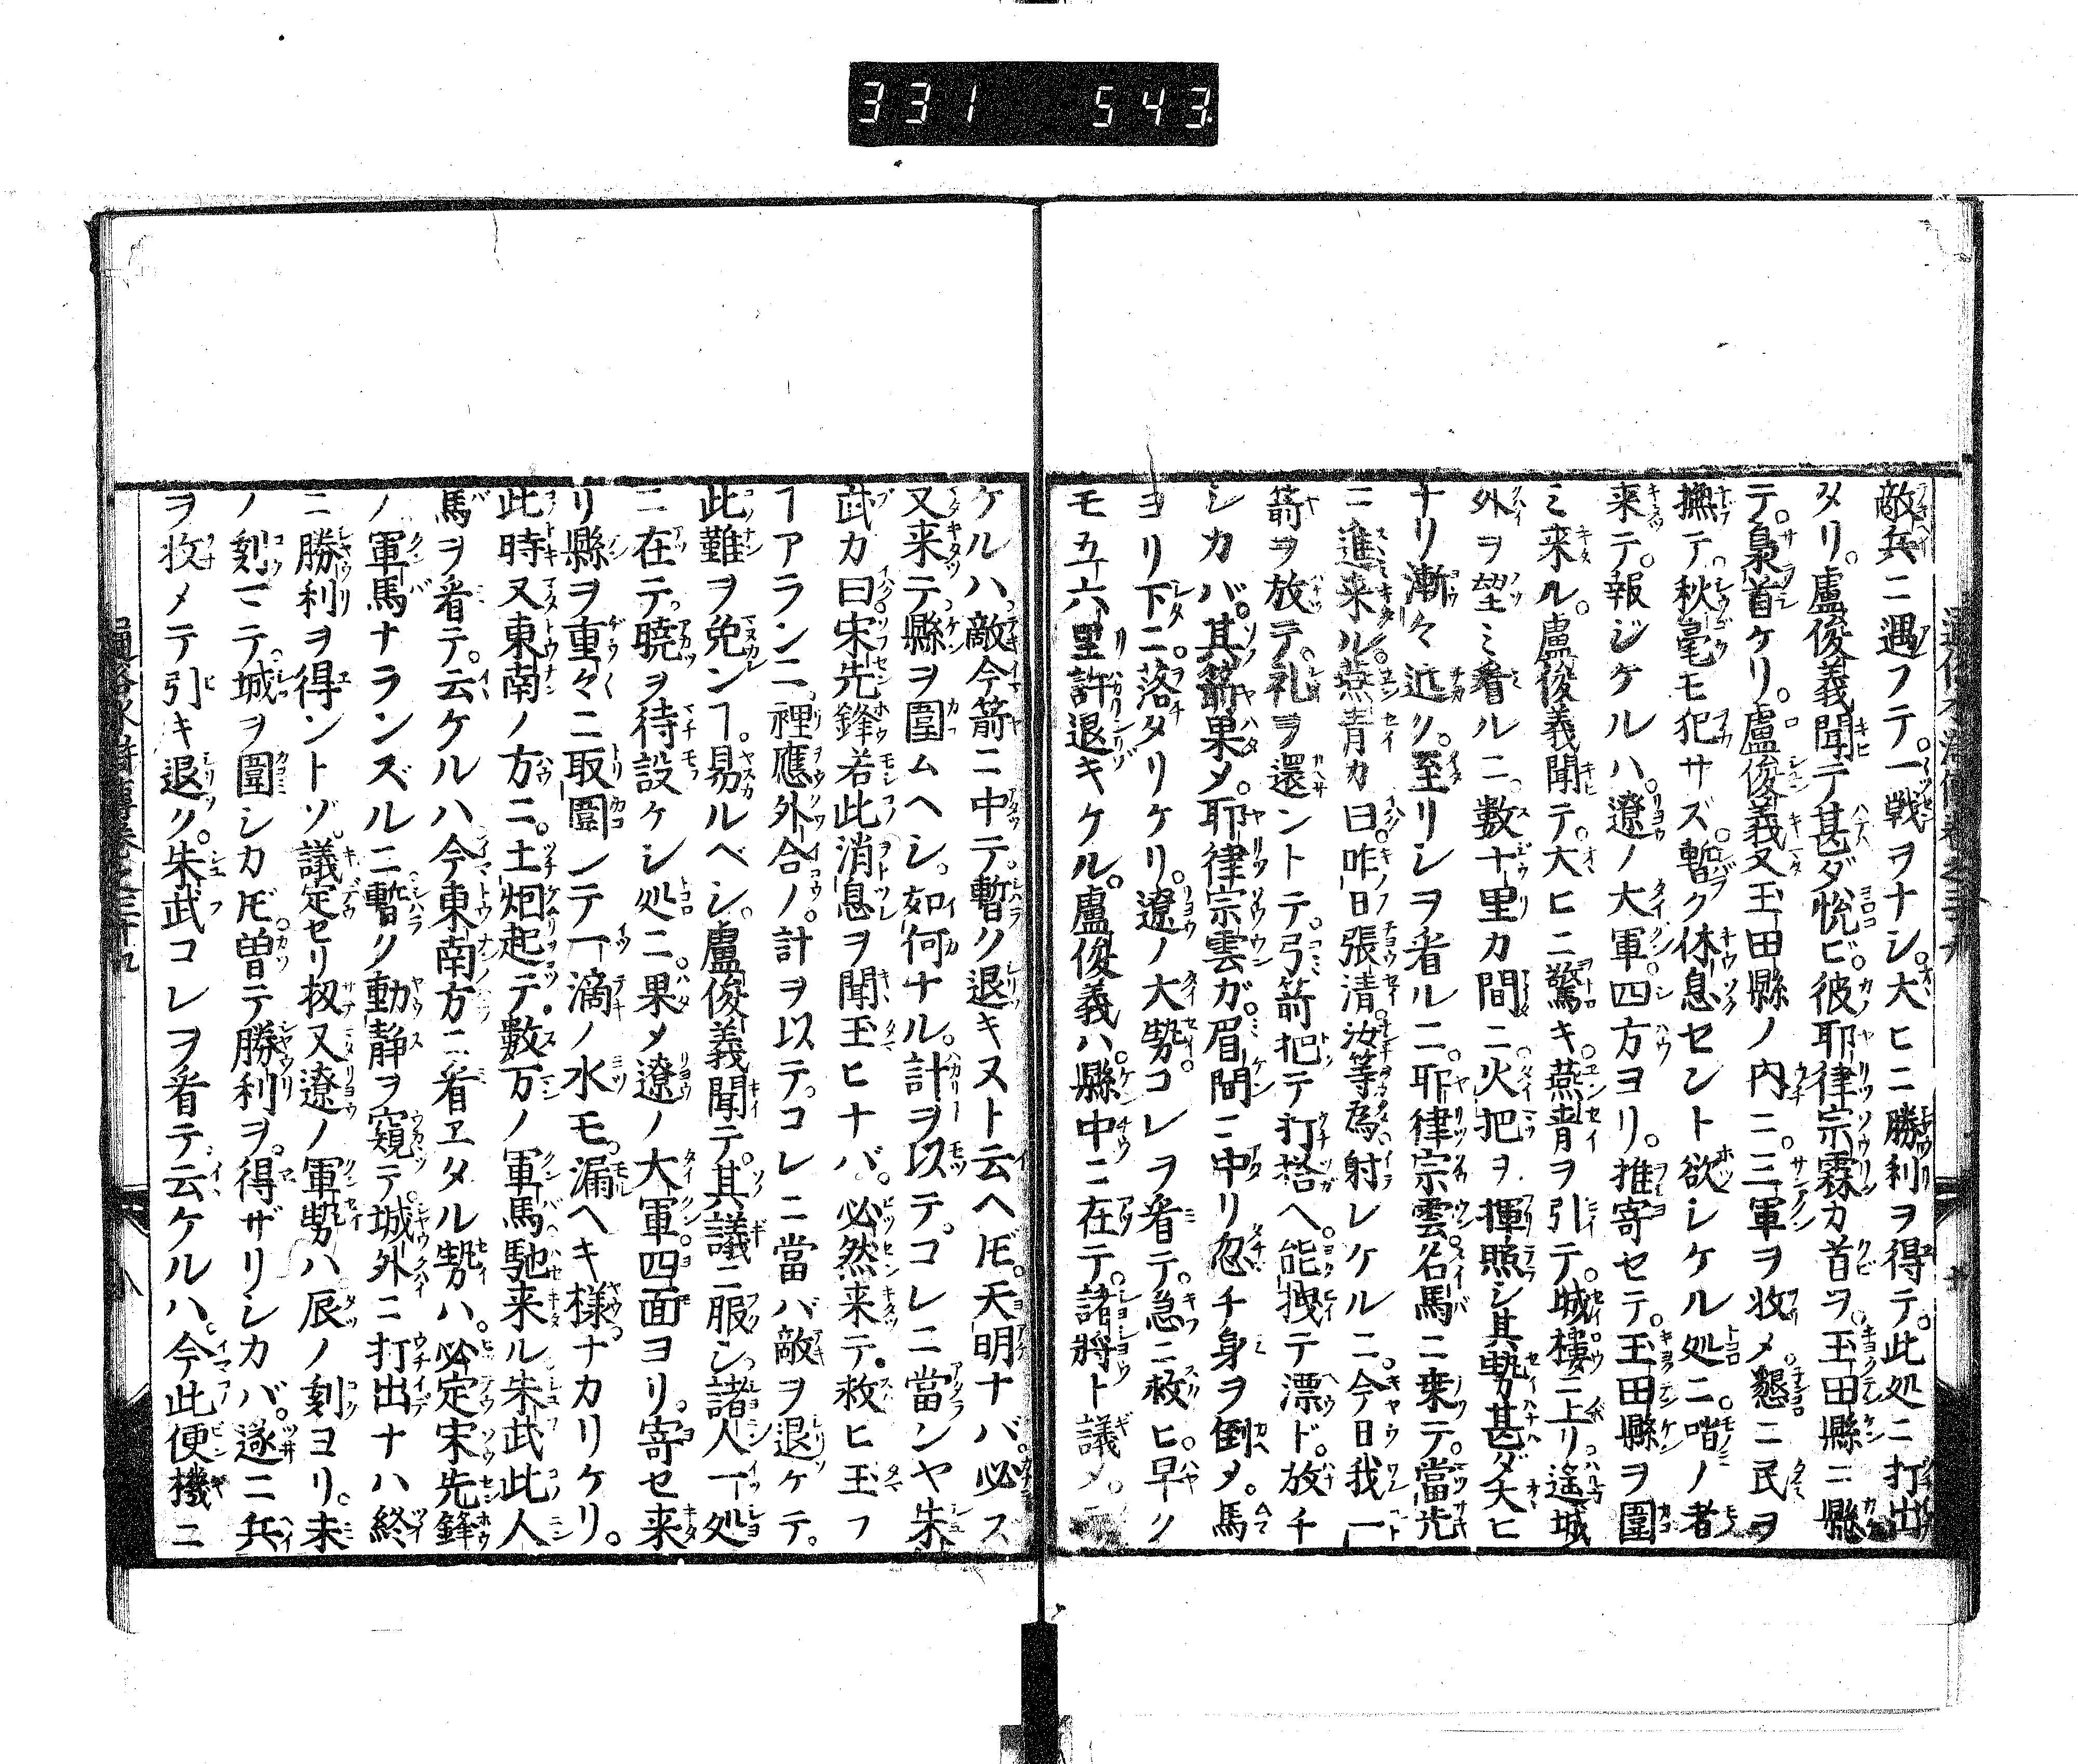 331 543
敵兵ニ遇フテ。一戦ヲナシ。大ヒニ勝利ヲ得テ。此処ニ打出
タリ。盧俊義聞テ甚ダ悦ビ。彼耶律宗霖カ首ヲ。玉田縣ニ縣
テ。梟首ケリ。盧俊義又玉田縣ノ内ニ。三軍ヲ收メ懇ニ民ヲ
撫テ。秋毫モ犯サズ。暫ク休息セント欲シケル処ニ。喈ノ者
来テ。報ジケルハ。遼ノ大軍四方ヨリ。推寄セテ。玉田縣ヲ圍
ミ来ル。盧俊義聞テ。大ヒニ驚キ。燕青ヲ引テ。城樓ニ上リ。遙城
外ヲ望ミ看ルニ。數十里カ間ニ。火把ヲ揮照シ其勢甚ダ大ヒ
ナリ漸々近ク。至リシヲ看ルニ。耶律宗雲。名馬ニ乗テ。當先
ニ進来ル。燕青カ曰。昨日張清汝等為射レケルニ。今日我一
箭ヲ放テ。礼ヲ還ントテ。弓箭把テ打搭ヘ。能拽テ漂ド。放チ
シカバ。其箭果メ。耶律宗雲ガ。眉間ニ中リ忽チ身ヲ倒メ。馬
ヨリ下ニ落タリケリ。遼ノ大勢。コレヲ看テ。急ニ救ヒ。早ク
モ五六里許退キケル。盧俊義ハ。縣中ニ在テ。諸將ト議メ。
ケルハ。敵今箭ニ中テ。暫ク退キヌト云ヘ𪜈。天明ナバ。必ス
又来テ。縣ヲ圍ムヘシ。如何ナル。計ヲ以テ。コレニ當ンヤ朱
武カ曰。宋先鋒若此消息ヲ聞玉ヒナバ。必然来テ。救ヒ玉フ
ヿアランニ。裡應外合ノ。計ヲ以テ。コレニ當バ敵ヲ退ケテ。
此難ヲ免ンヿ。易ルベシ。盧俊義聞テ。其議ニ服シ。諸人一処
ニ在テ。曉ヲ待設ケシ処ニ。果メ遼ノ大軍四面ヨリ。寄セ来
リ縣ヲ重々ニ取圍ンテ一滴ノ水モ。漏ヘキ様ナカリケリ。
此時又東南ノ方ニ。土烟起テ。數万ノ軍馬馳来ル朱武此人
馬ヲ看テ。云ケルハ今東南方ニ看エタル勢ハ。必定宋先鋒
ノ軍馬ナランズルニ暫ク動静ヲ窺テ。城外ニ打出ナハ終
ニ勝利ヲ得ントゾ。議定セリ扨又遼ノ軍勢ハ辰ノ刻ヨリ。未
ノ刻マテ。城ヲ圍シカ𪜈。曽テ勝利ヲ。得ザリシカバ。遂ニ兵
ヲ收メテ引キ退ク。朱武コレヲ看テ。云ケルハ。今此便機ニ